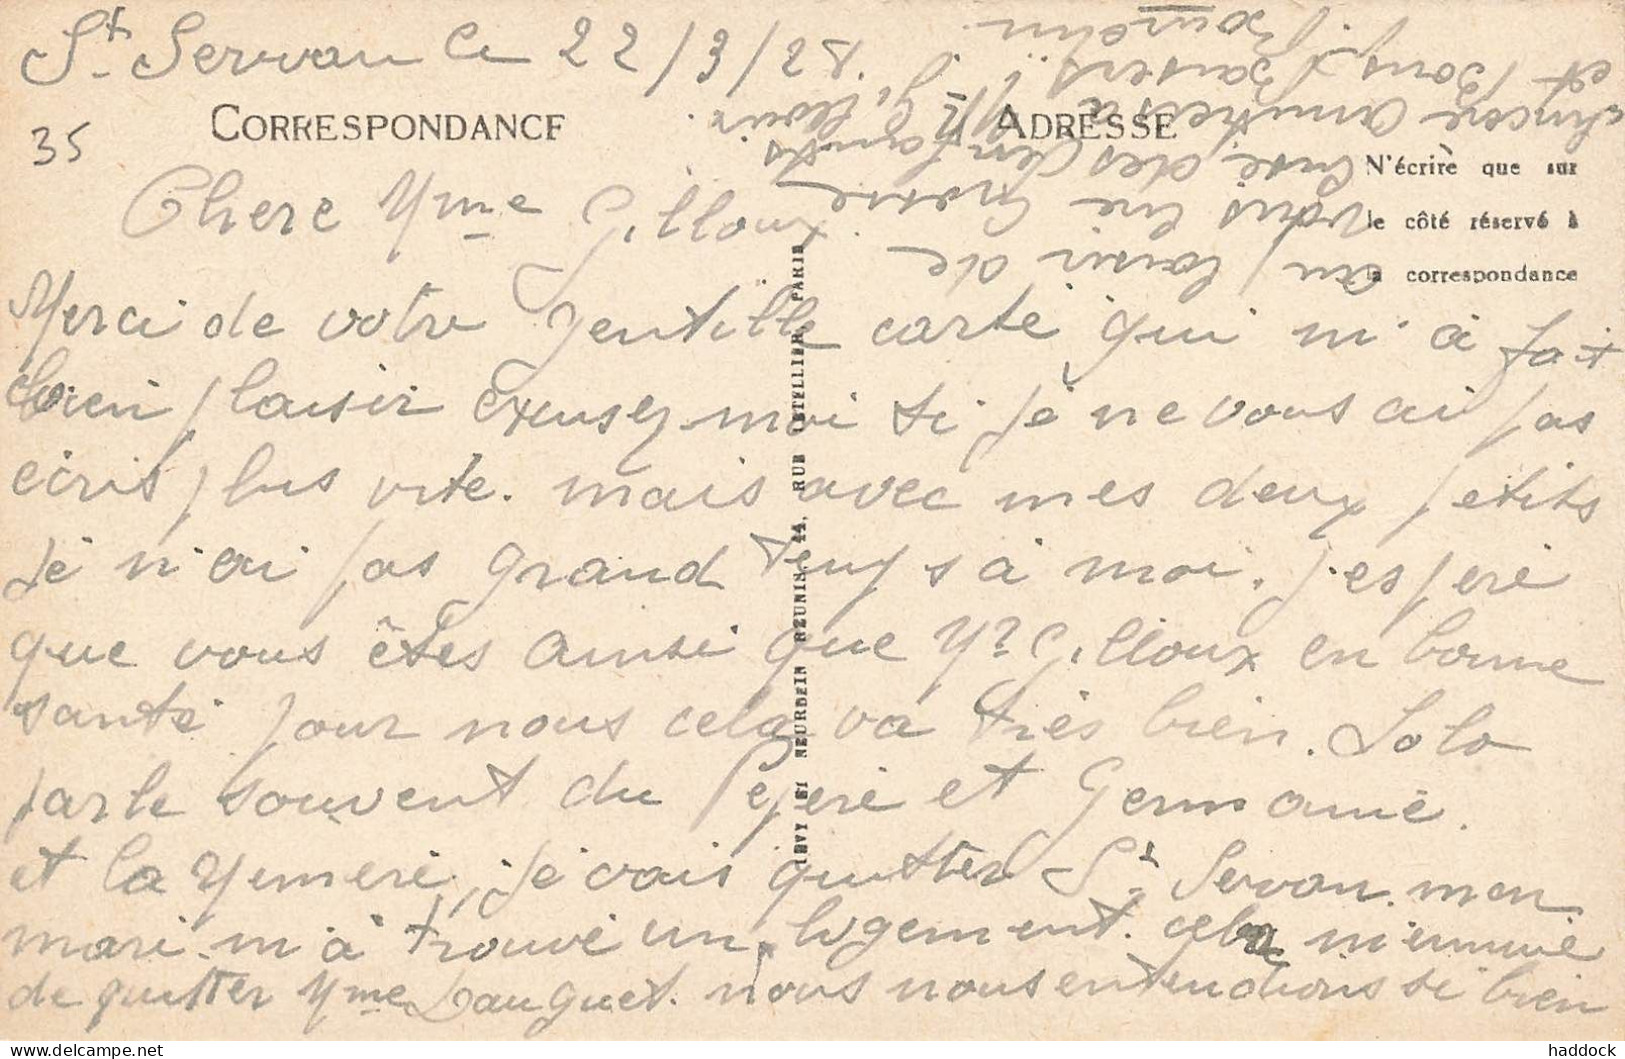 St Servan le 22/3/28.
CORRESPONDANCE
ADRESSE
35
N'écrire que sur
le côté réservé à
la correspondance
Chere Mme Gilloux
Merci de votre gentille carte qui m'à fait
bien plaisir excusez moi si je ne vous ai pas
écris plus vite. mais avec mes deux petits
Je n'ai pas grand temps à moi. J'espère
que vous êtes ainsi que Mr Gilloux en bonne
santé pour nous cela va très bien. Lolo
parle souvent du Pepère et Germaine.
et la Mémère, je vais quitter St Servan. mon
mari m'à trouvé un logement. cela m'ennuie
de quitter Mme Dauguet. nous nous entendions si bien
au plaisir de
vous lire notre
des enfants
à Mr Gilloux.
sincère
et Bons Baisers
LEVY ET NEURDEIN RÉUNIS, 44, RUE LETELLIER, PARIS
haddock